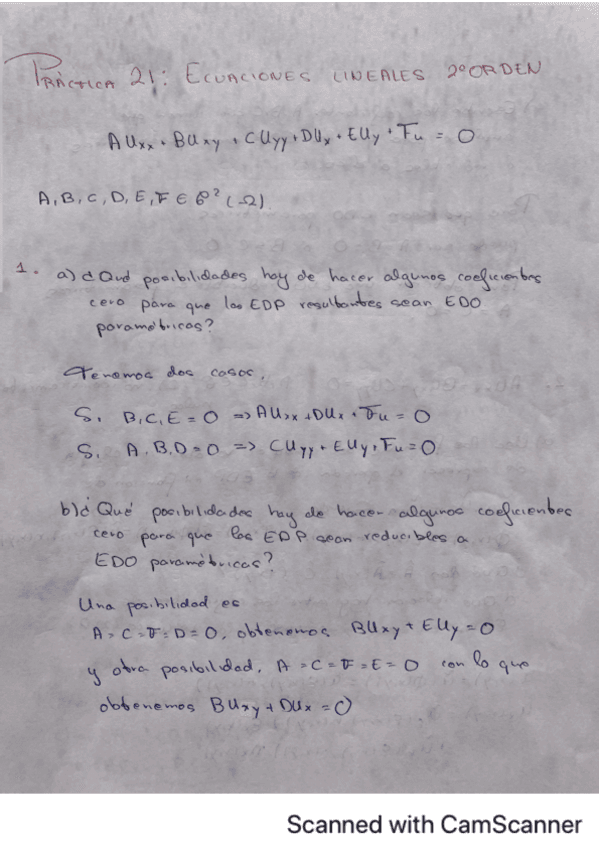 PRÁCTICA 21: ECUACIONES LINEALES 2º ORDEN
AUxx + BUxy + CUyy + DUx + EUy + Fu = 0
A, B, C, D, E, F ∈ C² (Ω)
1. a) ¿Qué posibilidades hay de hacer algunos coeficientes
cero para que las EDP resultantes sean EDO
paramétricas?
Tenemos dos casos.
Si B, C, E = 0 => AUxx + DUx + Fu = 0
Si A, B, D = 0 => CUyy + EUy + Fu = 0
b) ¿Qué posibilidades hay de hacer algunos coeficientes
cero para que las EDP sean reducibles a
EDO paramétricas?
Una posibilidad es
A = C = F = D = 0, obtenemos BUxy + EUy = 0
y otra posibilidad, A = C = F = E = 0 con lo que
obtenemos BUxy + DUx = 0
Scanned with CamScanner